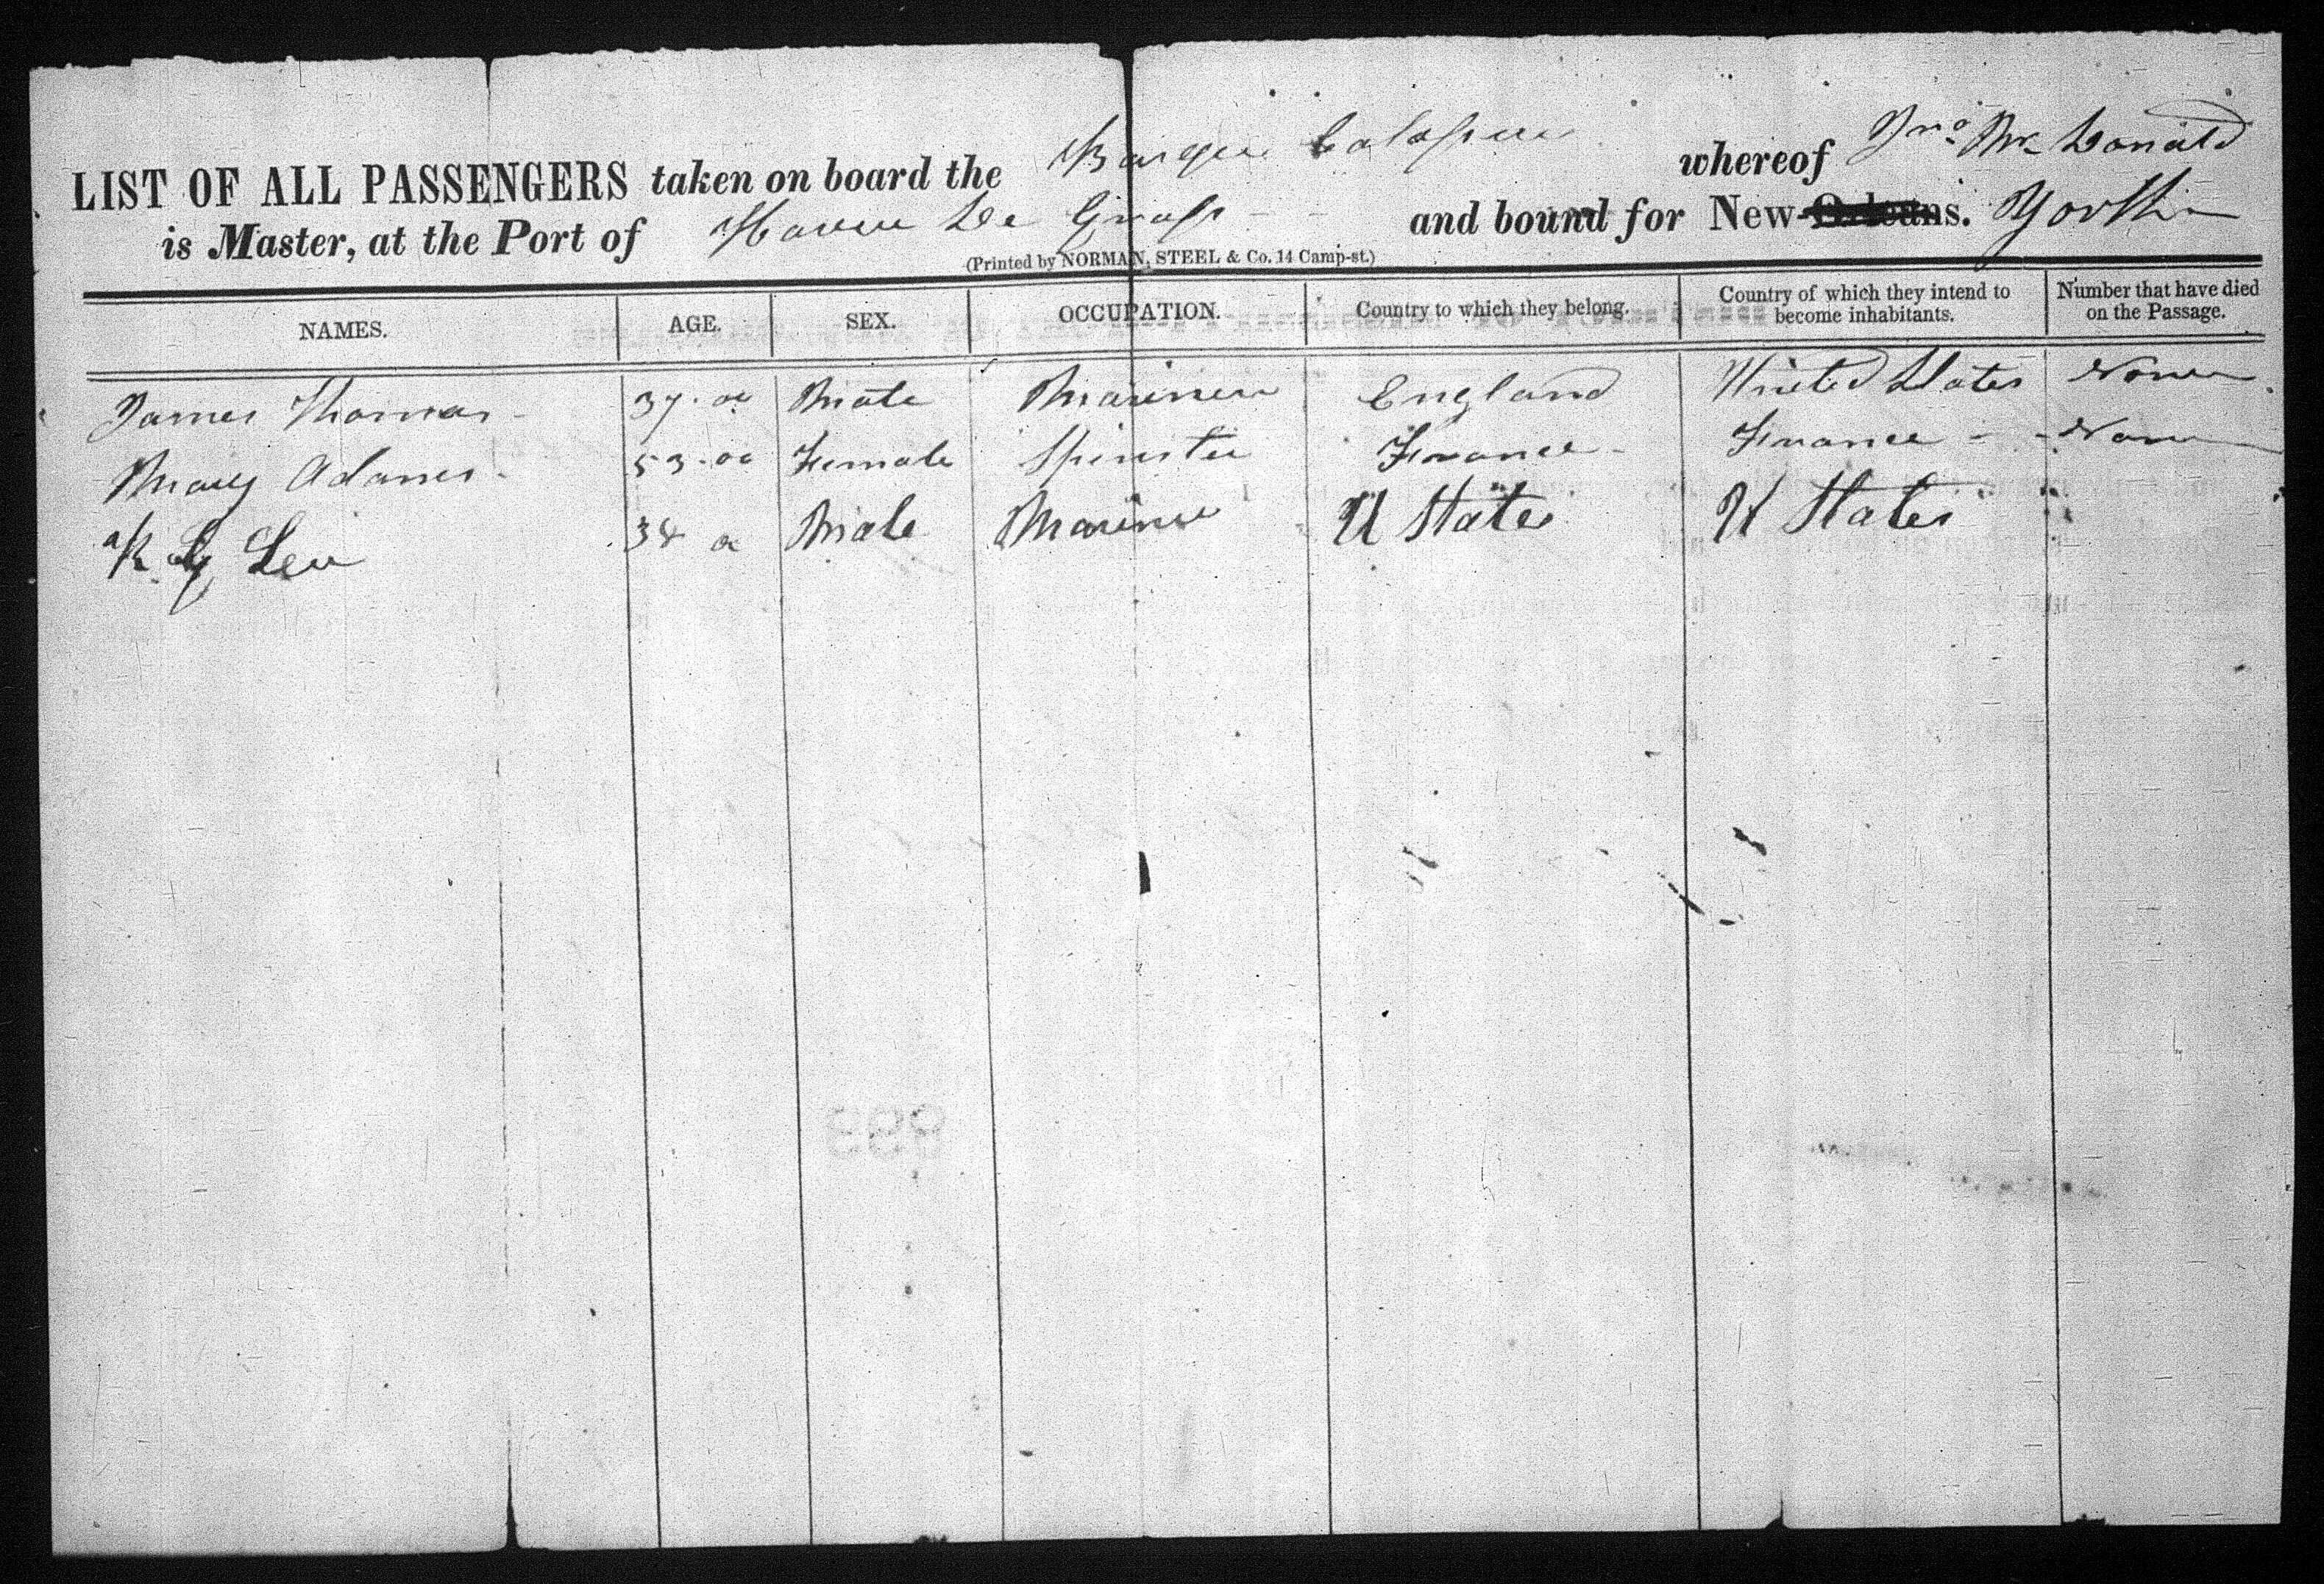 LIST OF ALL PASSENGERS taken on board the Barque whereof Jno. McDonald
is Master, at the Port of Havre De Grass and bound for New-Orleans. York
(Printed by NORMAN, STEEL & Co. 14 Camp-st.)
NAMES. AGE. SEX. OCCUPATION. Country to which they belong. Country of which they intend to become inhabitants. Number that have died on the Passage.
James Thomas 37 Male Mariner England United States None
Mary Adams 53 Female Spinster France France None
Male Mariner U States U States